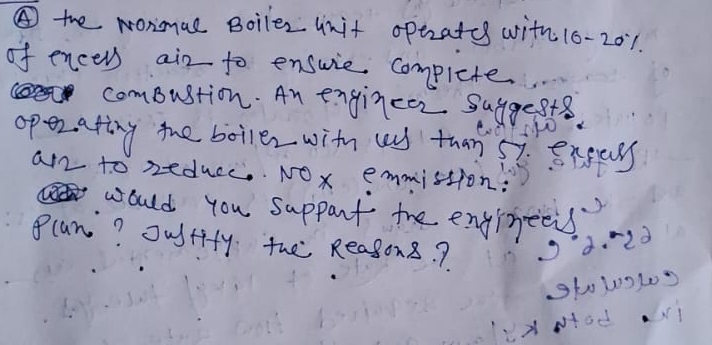 Ⓐ the Normal Boiler Unit operates with 10-20%
of excess air to ensure complete
combustion. An engineer suggests
operating the boiler with less than 5% excess
air to reduce NOx emmission.
would you support the engineers
Plan? Justify the Reasons?